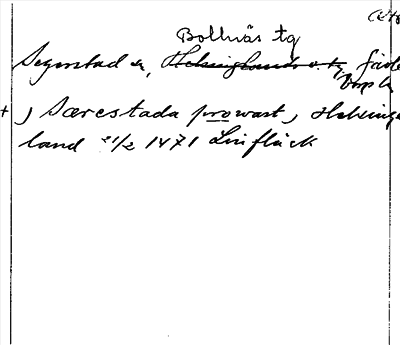 Bollnäs tg
Segerstad sn, Helsinglands v. tg, Gävle
+ ) Særestada prowast, Helsinge
land 21/2 1471 Linfläck